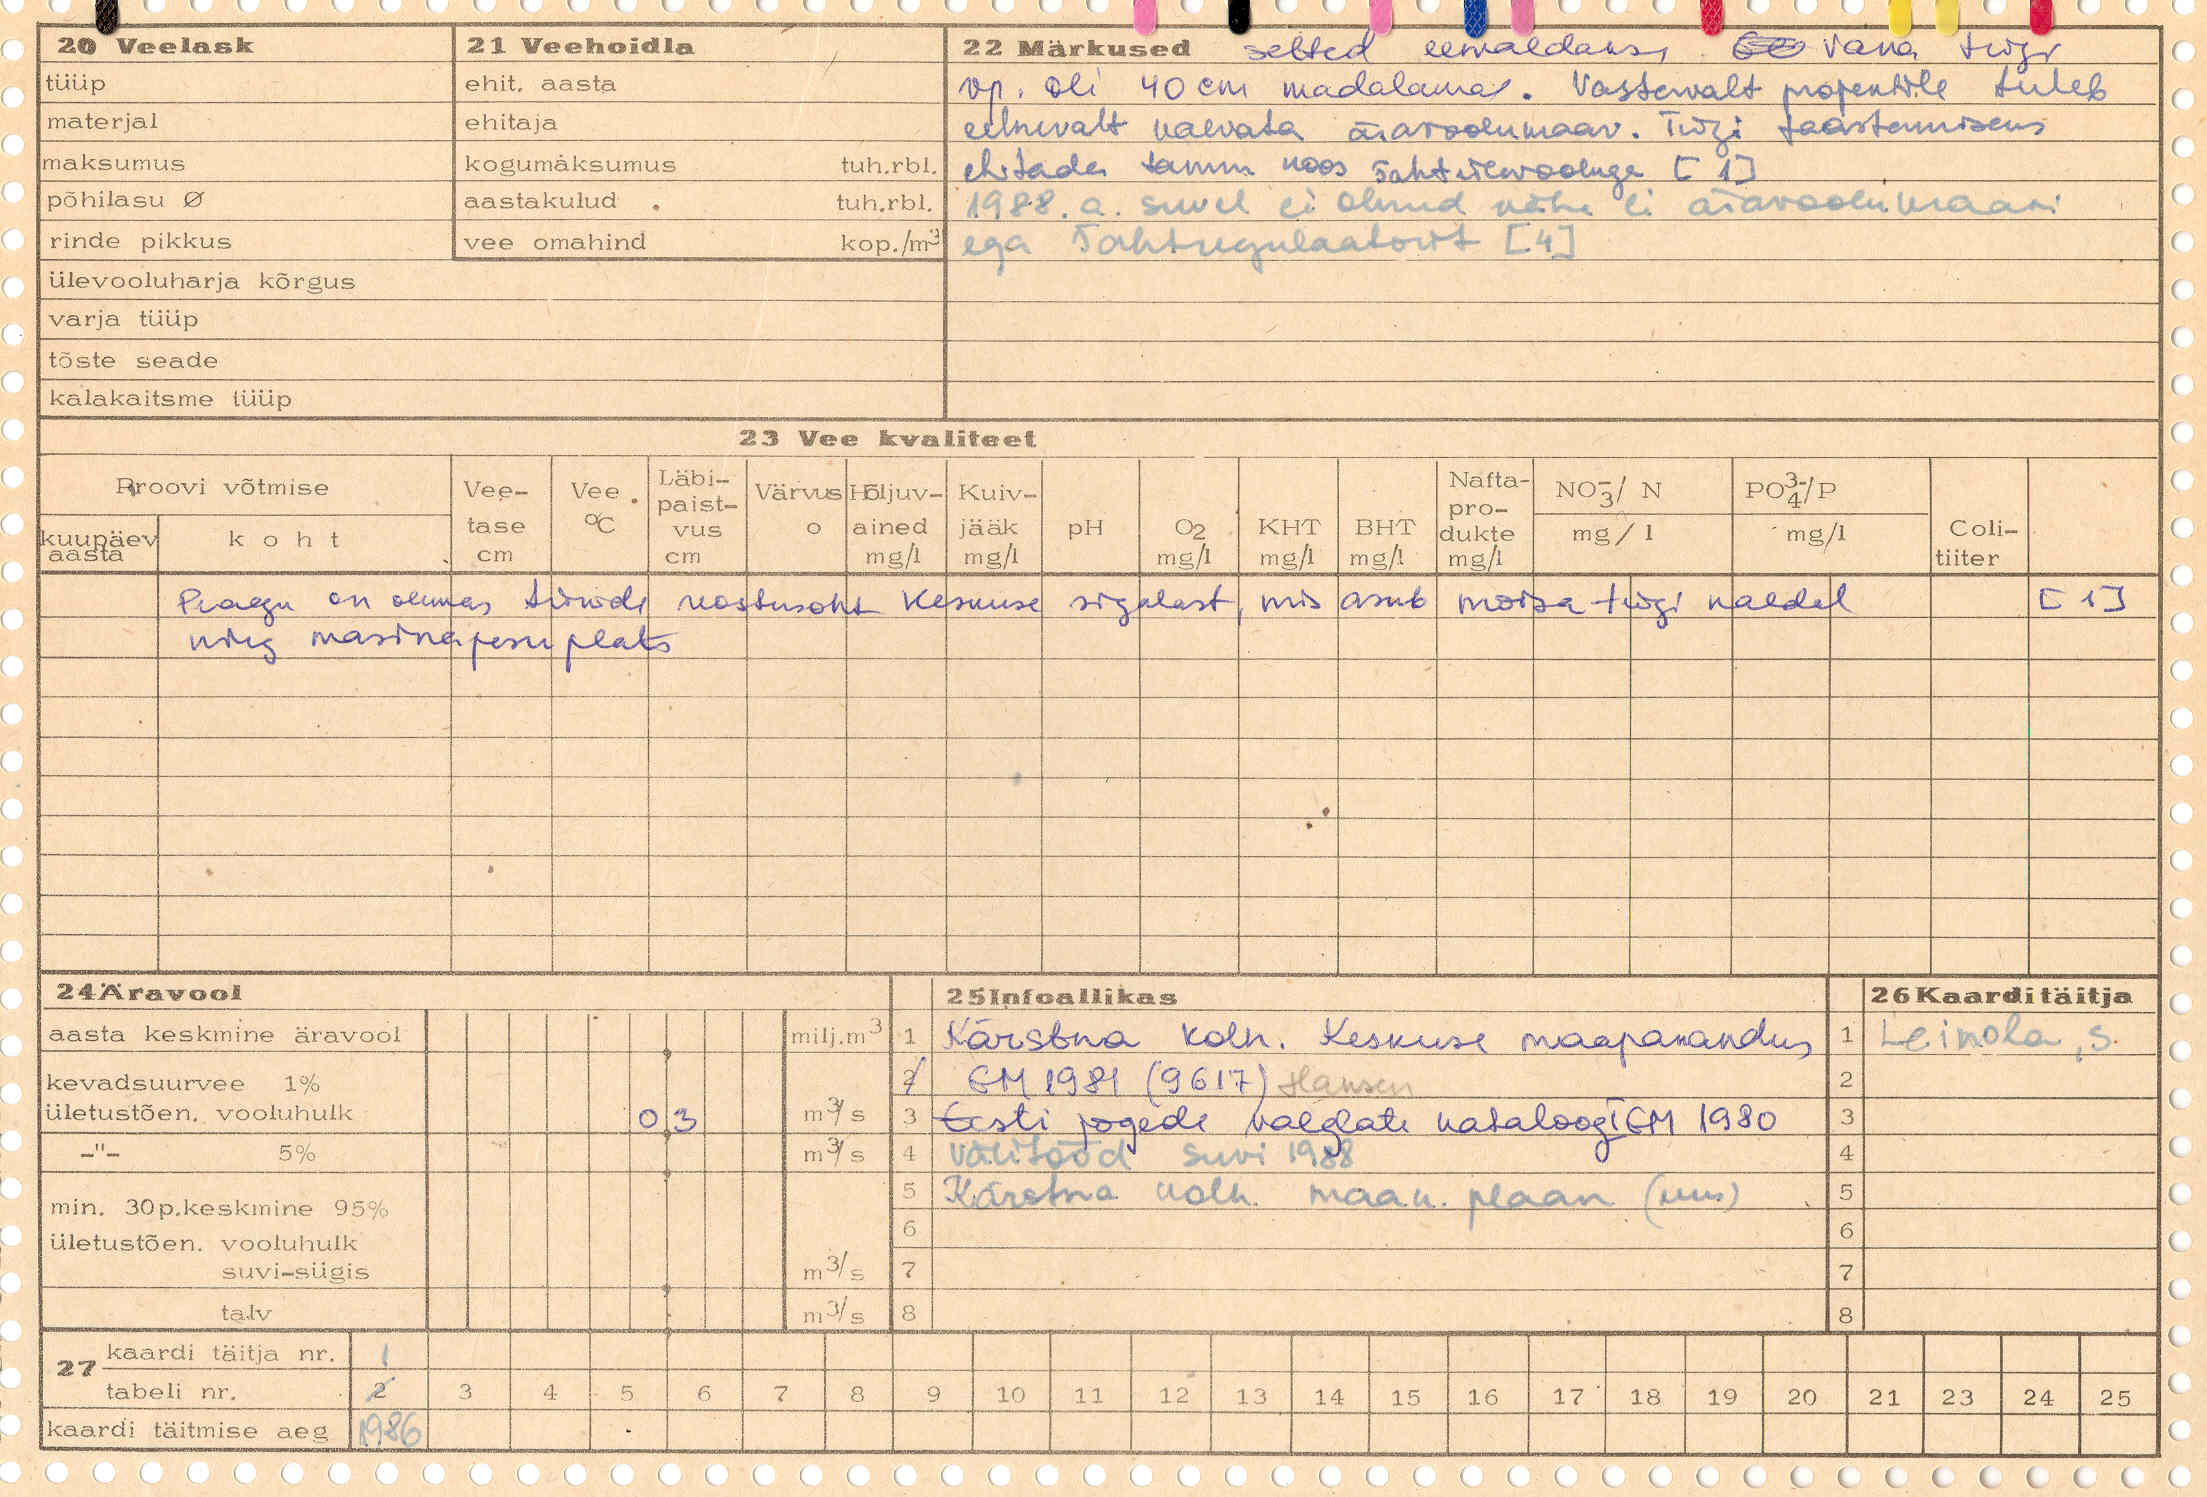 20 Veelask
tüüp
materjal
maksumus
põhilasu Ø
rinde pikkus
ülevooluharja kõrgus
varja tüüp
tõste seade
kalakaitsme tüüp
21 Veehoidla
ehit. aasta
ehitaja
kogumaksumus tuh.rbl.
aastakulud tuh.rbl.
vee omahind kop./m³
22 Märkused setted eemaldaks, vana tiigi
vp. oli 40 cm madalamal. Vastavalt projektile tuleb
eelnevalt kaevata äravoolukraav. Tiigi taastamiseks
ehitada tamm koos šahtülevooluga [1]
1988. a. suvel ei olnud näha ei äravoolukraavi
ega šahtregulaatorit [4]
23 Vee kvaliteet
Proovi võtmise
kuupäev aasta
koht
Vee-tase cm
Vee °C
Läbi-paist-vus cm
Värvus o
Hõljuv-ained mg/l
Kuiv-jääk mg/l
pH
O2 mg/l
KHT mg/l
BHT mg/l
Nafta-pro-dukte mg/l
NO3-/ N mg/l
PO4 3-/P mg/l
Coli-tiiter
Praegu on olemas tiikide reostusoht Keskuse sigalast, mis asub mõisa tiigi kaldal [1]
ning masinapesu plats
24 Äravool
aasta keskmine äravool milj.m³
kevadsuurvee 1%
ületustõen. vooluhulk 0,3 m³/s
-"- 5% m³/s
min. 30p.keskmine 95%
ületustõen. vooluhulk
suvi-sügis m³/s
talv m³/s
25 Infoallikas
1 Kärstna kolh. Keskuse maaparandus
2 EM 1981 (9617) Hansen
3 Eesti jõgede valglate kataloog EM 1980
4 Välitööd suvi 1988
5 Kärstna kolh. maak. plaan (uus)
6
7
8
26 Kaarditäitja
1 Leinola, S.
2
3
4
5
6
7
8
27 kaardi täitja nr. 1
tabeli nr. 2 3 4 5 6 7 8 9 10 11 12 13 14 15 16 17 18 19 20 21 23 24 25
kaardi täitmise aeg 1986